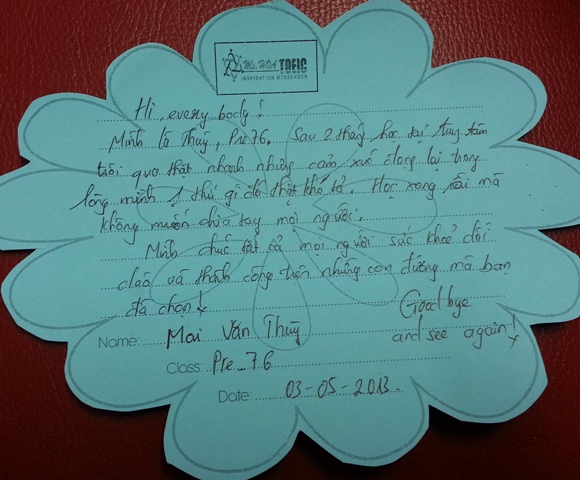 Ms. HOA TOEIC
INSPIRATION MESSENGER
Hi, every body!
Mình là Thùy, Pre 76. Sau 2 tháng học tại trung tâm
trôi qua thật nhanh nhưng cảm xúc đọng lại trong
lòng mình 1 thứ gì đó thật khó tả. Học xong rồi mà
không muốn chia tay mọi người.
Mình chúc tất cả mọi người sức khoẻ dồi
dào và thành công trên những con đường mà bạn
đã chọn!
Goodbye
and see again!
Name: Mai Văn Thùy
Class: Pre_76
Date: 03-05-2013.